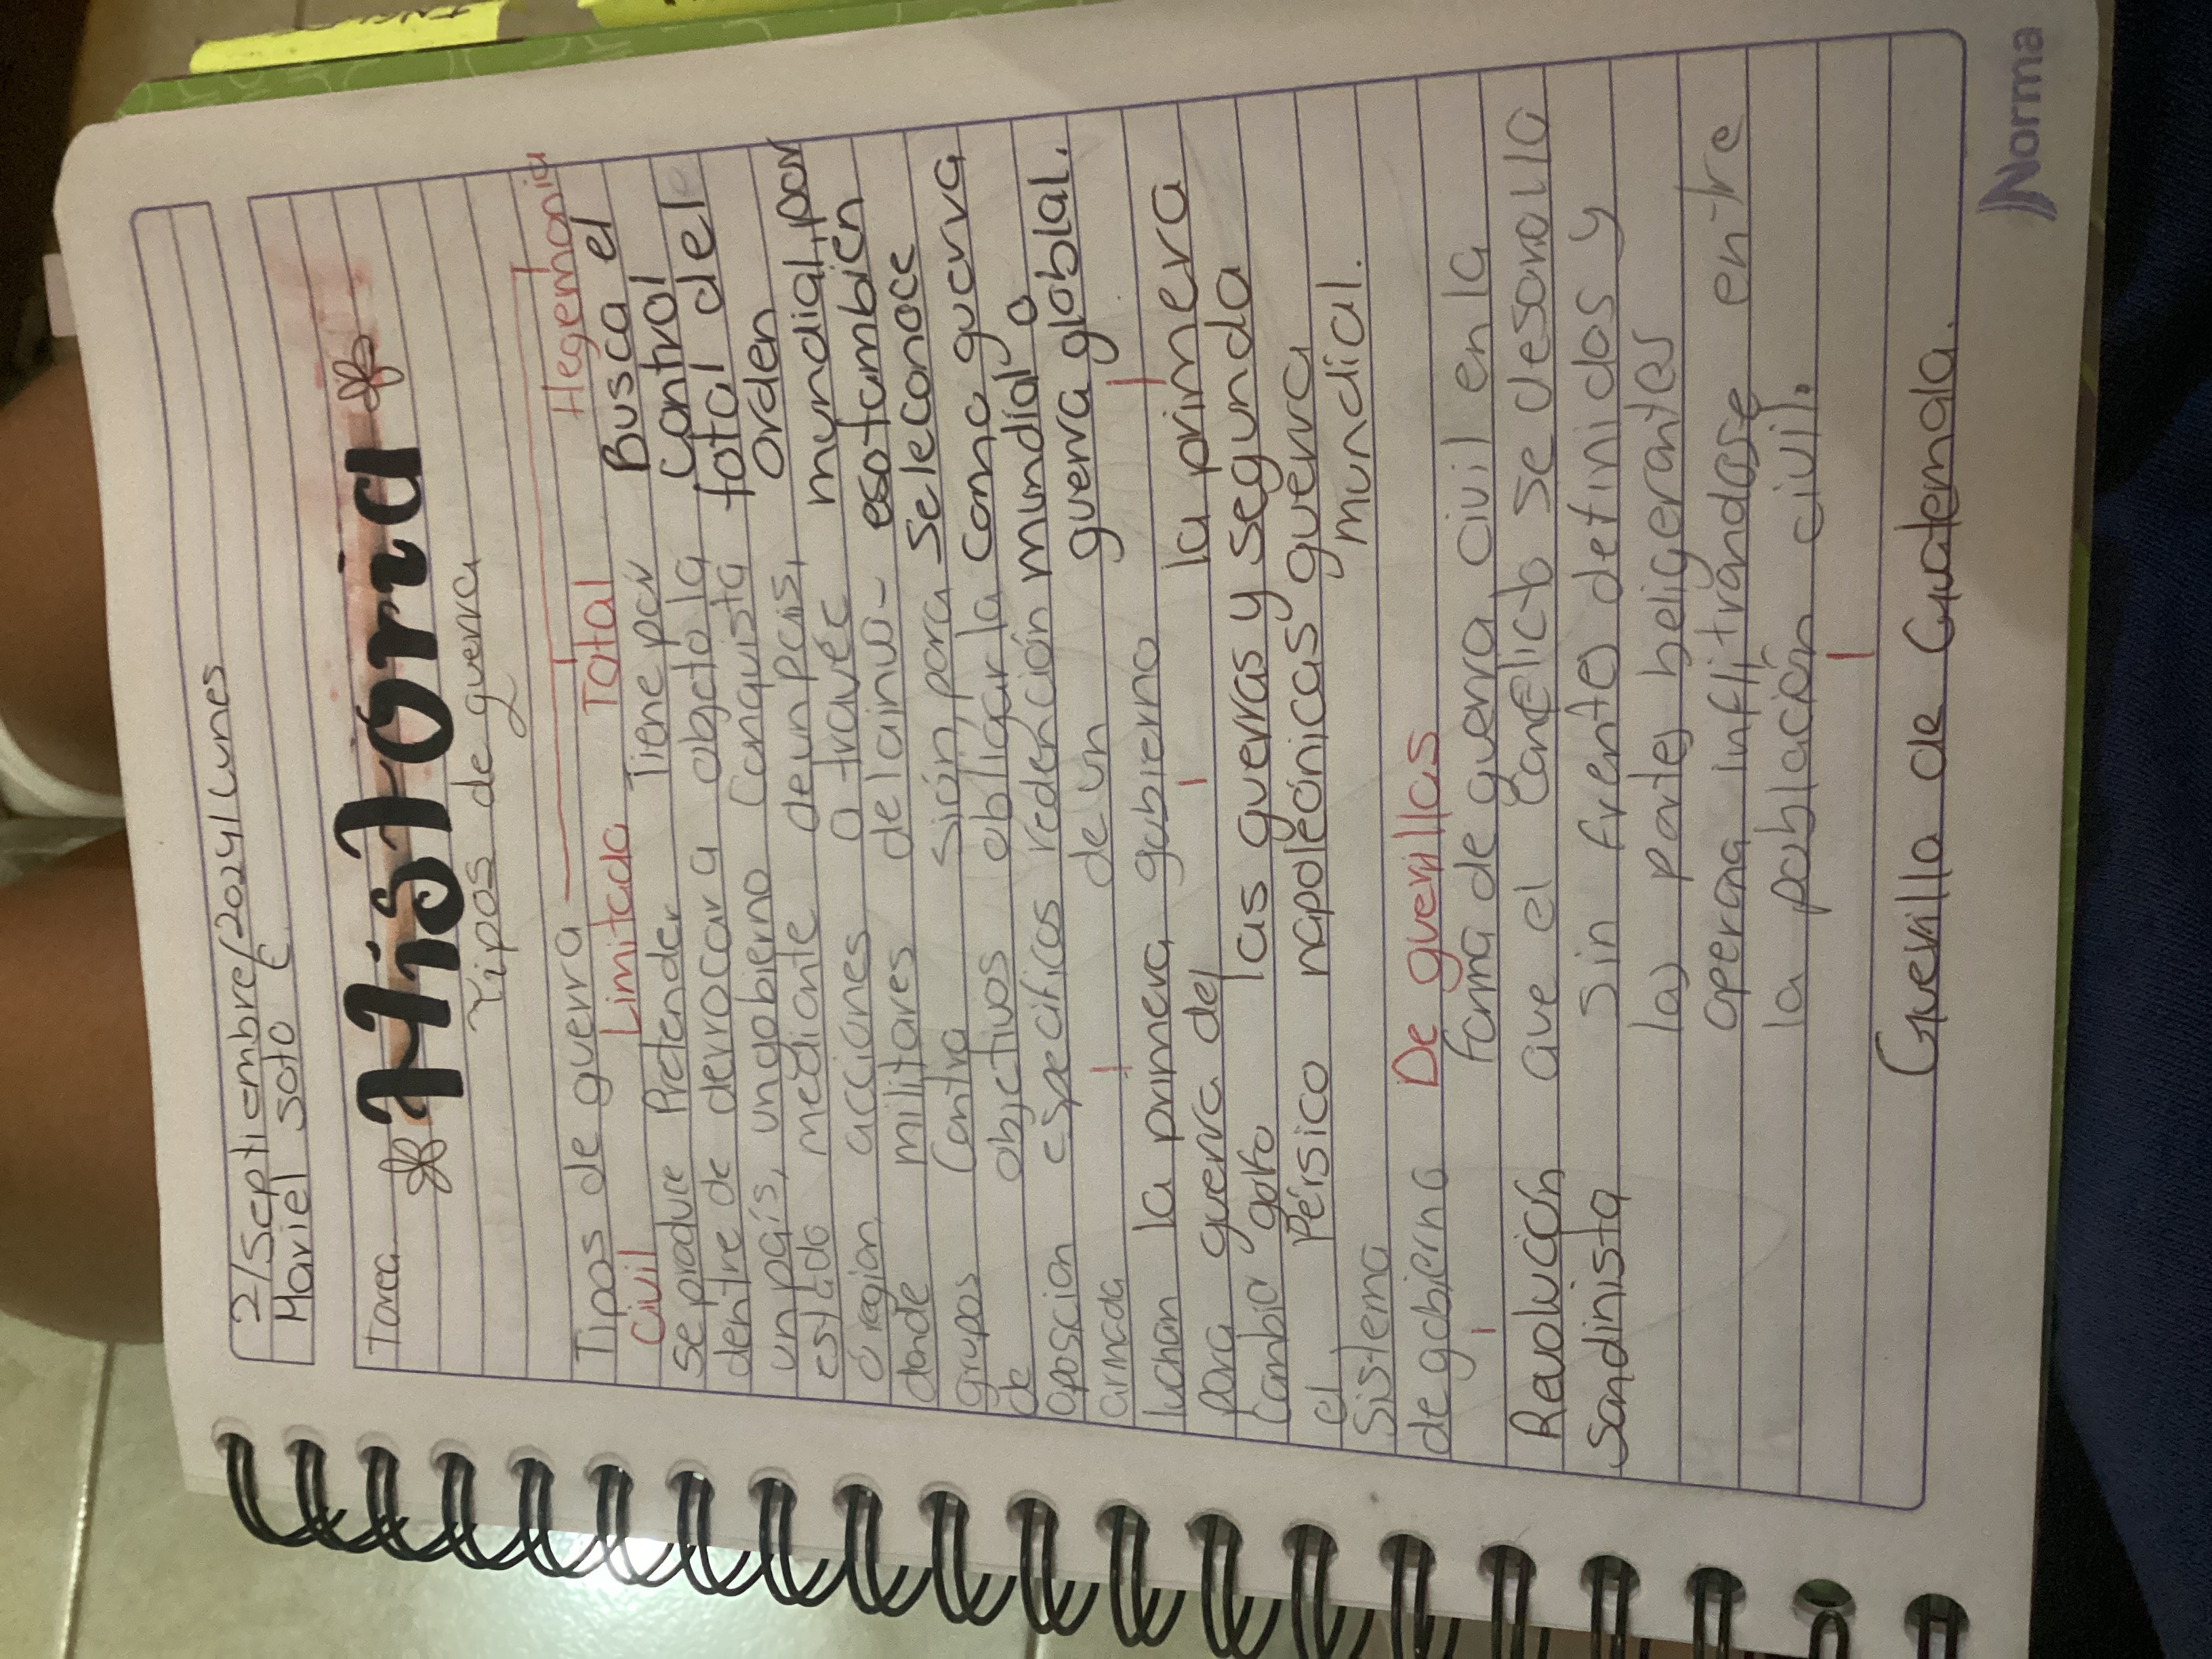 2/Septiembre/2024/Lunes
Mariel soto C
Tarea
Historia
Tipos de guerra
Tipos de guerra
Civil
se produce
dentre de
un país,
estado
ó región
donde
grupos
de
oposcion
armada
luchan
para
Cambiar
el
Sistema
de gobierno
Revolución
Sandinista
Limitada
Pretender
derrocar a
un gobierno
mediante
acciones
militares
Contra
objectivos
especificos
la primera
guerra del
golfo
Pérsico
Total
Tiene por
objecto la
Conquista
de un país,
a travéc
de lainvu-
sión, para
obligar la
redención
de un
gobierno
las guerras
napoleónicas
Hegemonia
Busca el
Control
total del
orden
mundial, por
eso tambien
se le conoce
como guerra
mundial o
guerra globlal.
la primera
y segunda
guerra
mundial.
De guerrillas
forma de guerra civil en la
que el conflicto se desorolla
sin frentes definidos y
las partes beligerantes
operana inflitrándose entre
la población civil.
Guerilla de Guatemala.
Norma